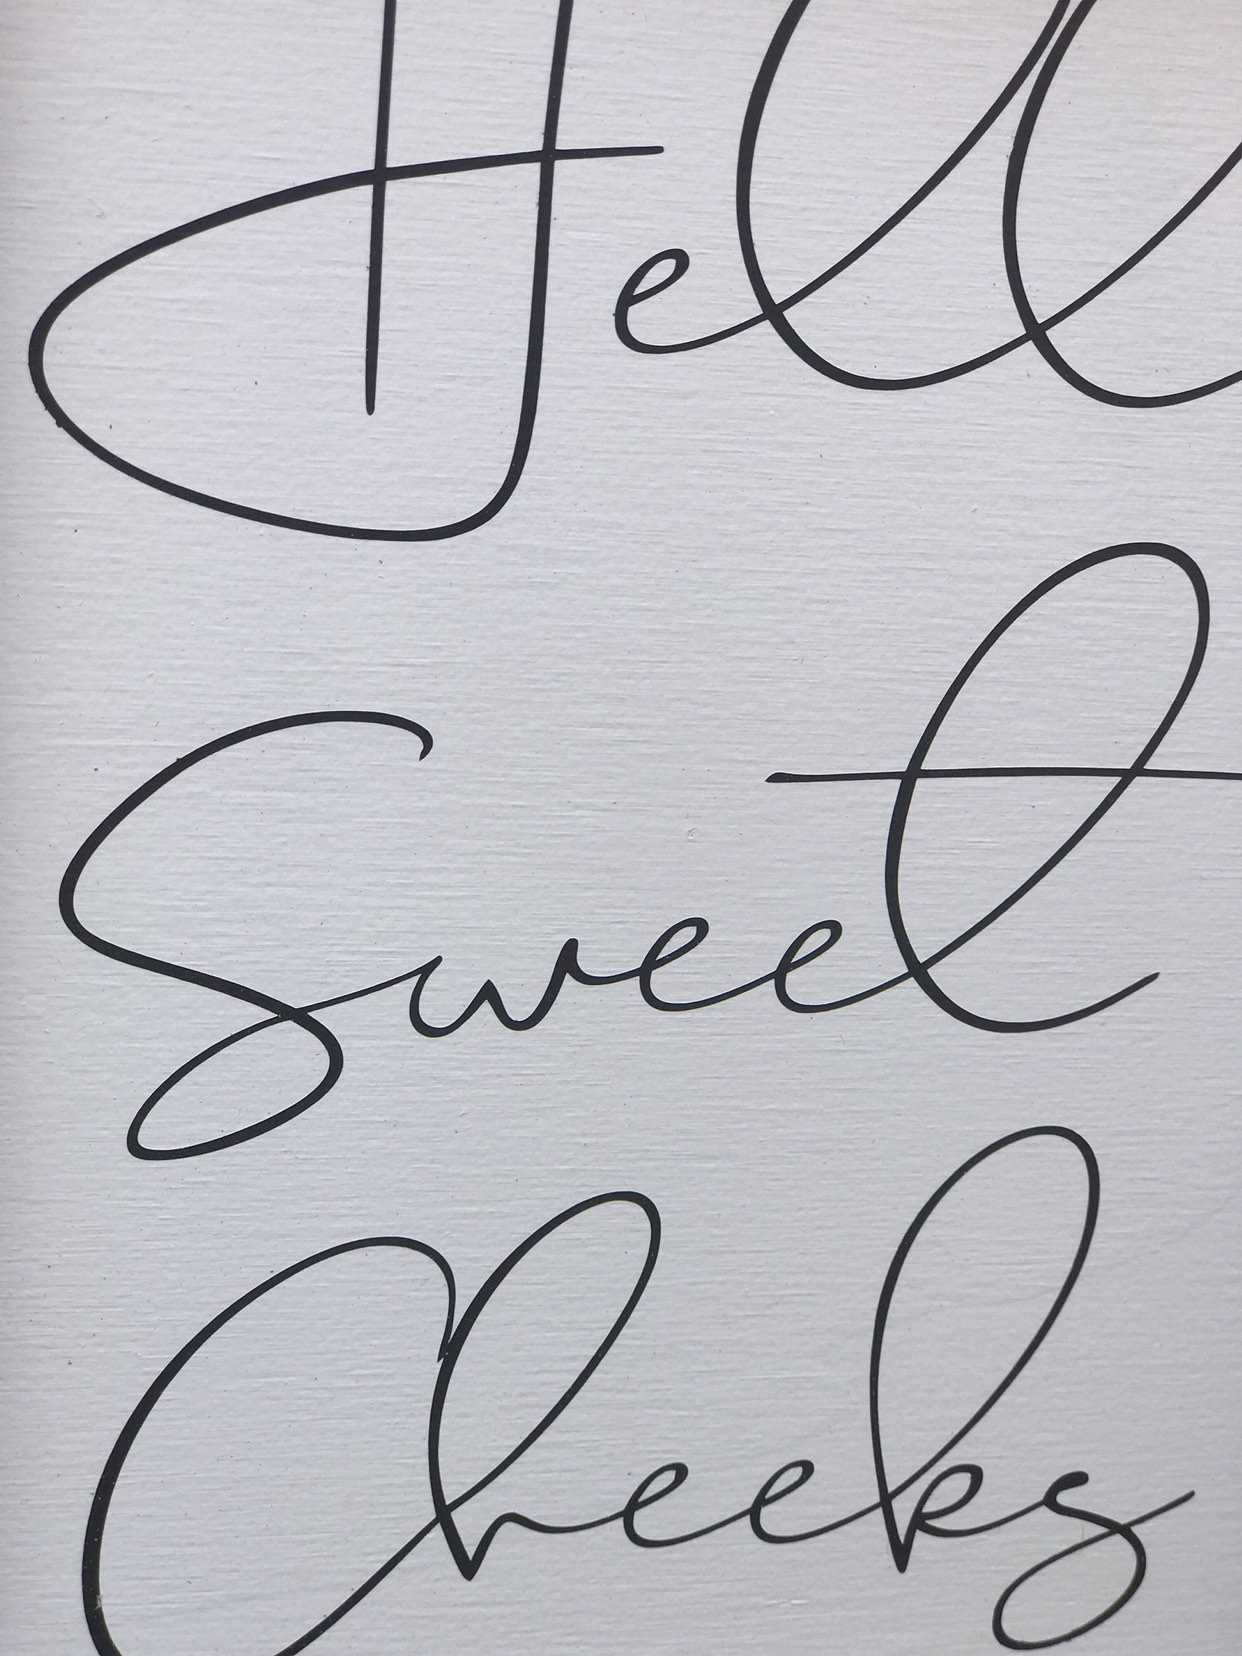 Hell
Sweet
Cheeks